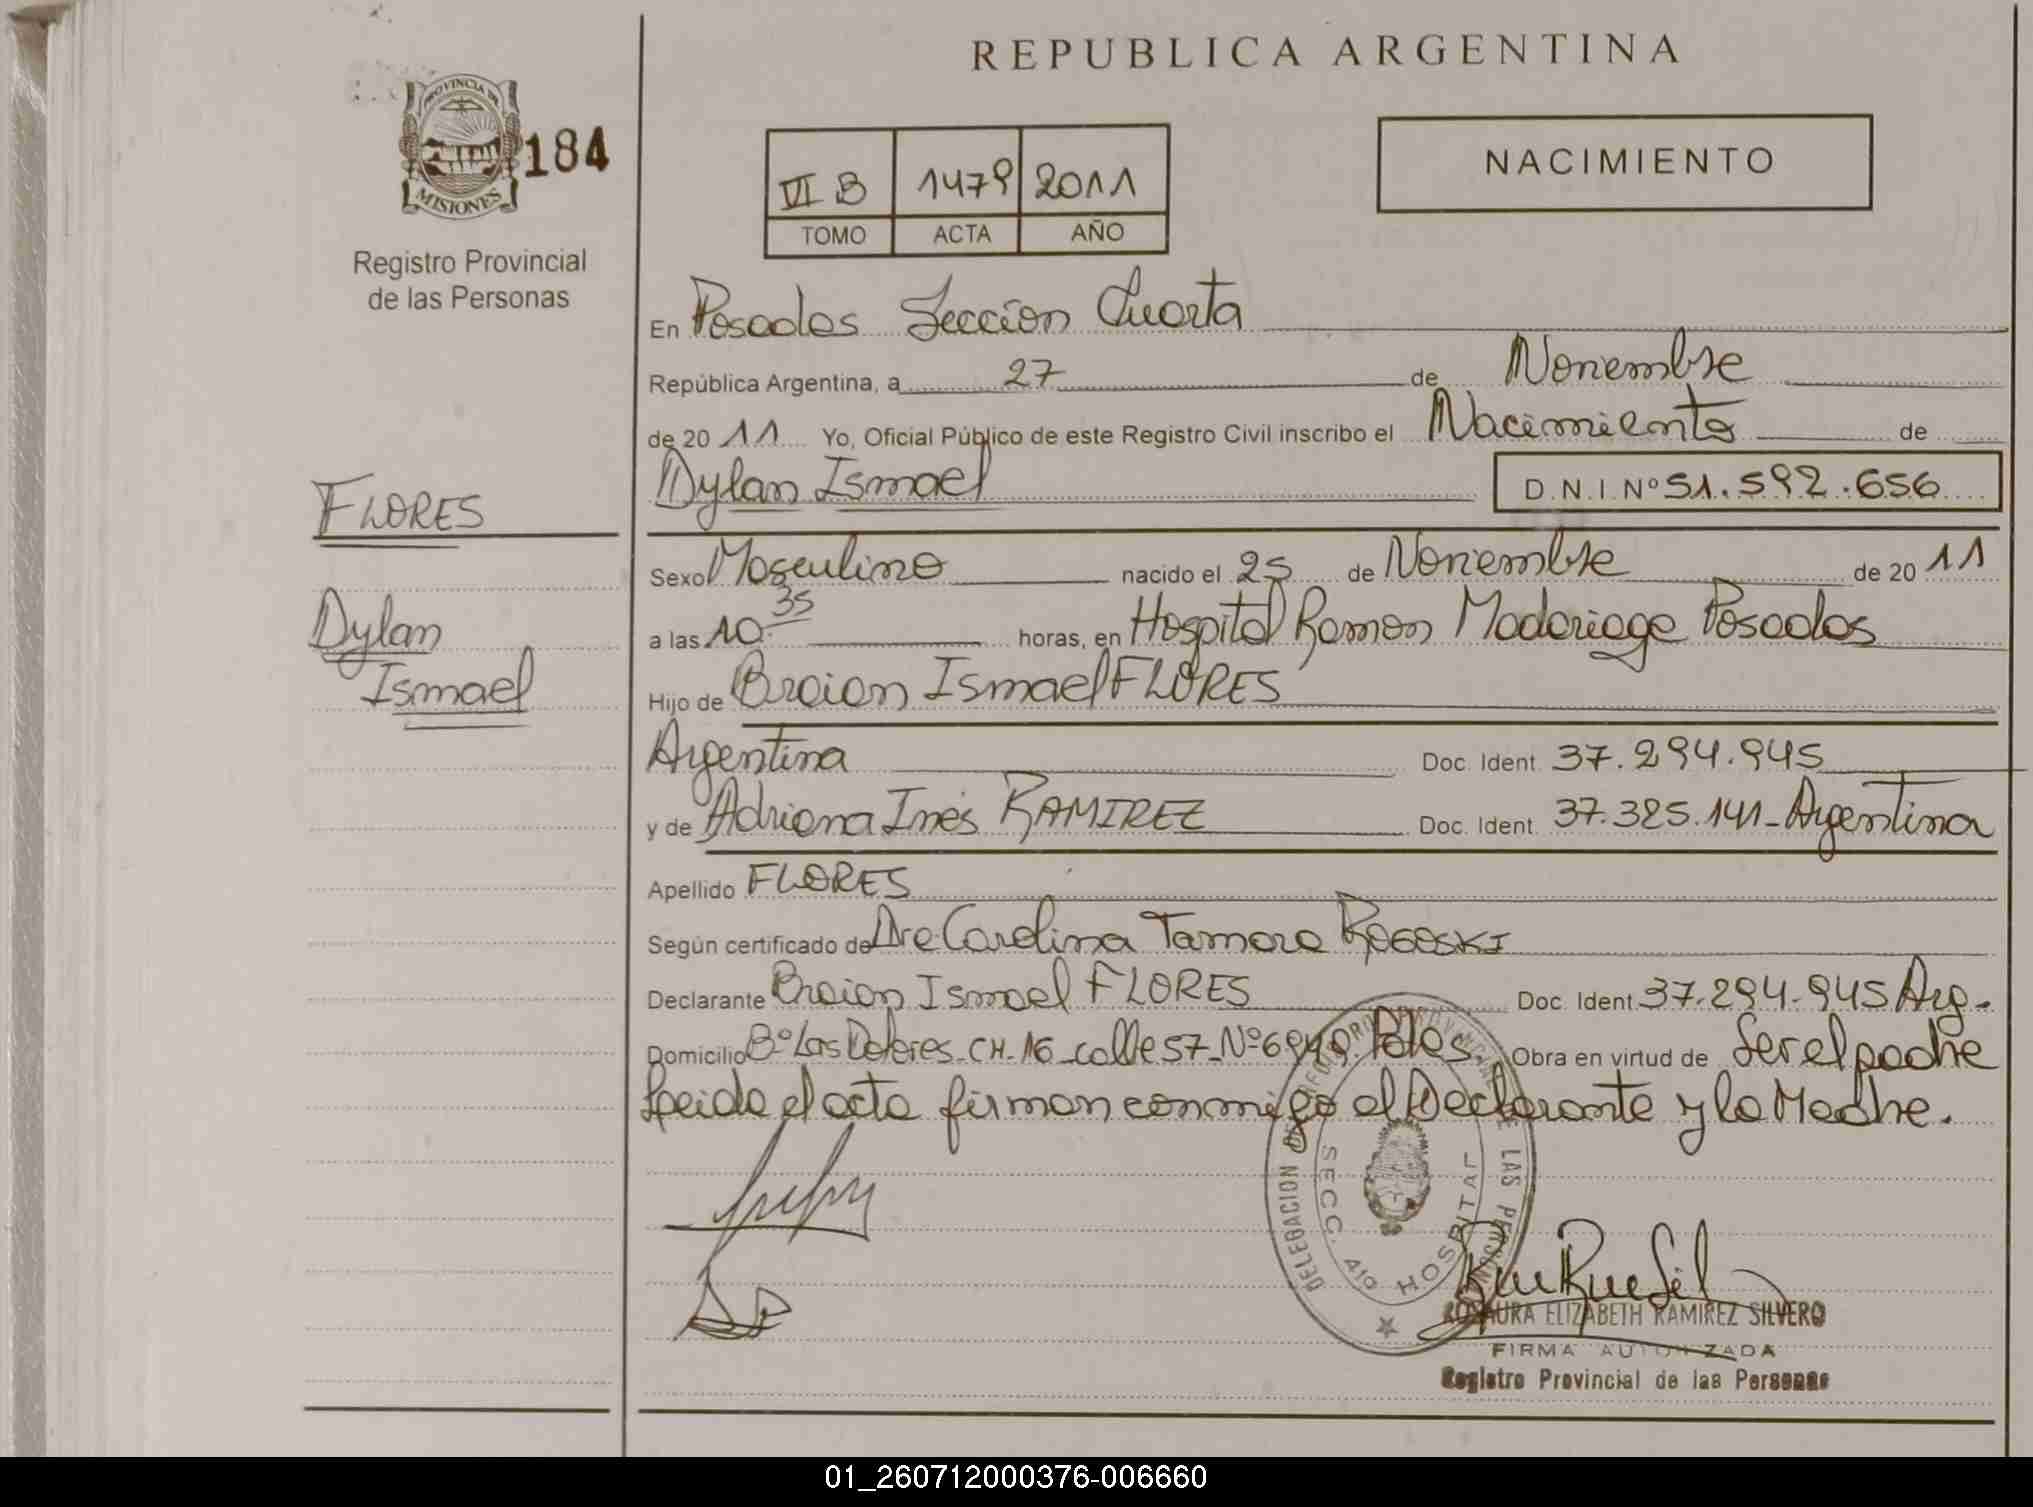 REPUBLICA ARGENTINA
PROVINCIA DE
MISIONES
184
Registro Provincial
de las Personas
VI B 1479 2011
TOMO ACTA AÑO
NACIMIENTO
En Posadas Sección Cuarta
República Argentina, a 27 de Noviembre
de 20 11 Yo, Oficial Público de este Registro Civil inscribo el Nacimiento de
Dylan Ismael D.N.I. Nº 51.592.656
FLORES
Dylan
Ismael
Sexo Masculino nacido el 25 de Noviembre de 20 11
a las 10.35 horas, en Hospital Ramon Madariaga Posadas
Hijo de Braian Ismael FLORES
Argentina Doc. Ident. 37.294.945
y de Adriana Inés RAMIREZ Doc. Ident. 37.325.141 - Argentina
Apellido FLORES
Según certificado de Dra Carolina Tamara ROGOSKI
Declarante Braian Ismael FLORES Doc. Ident. 37.294.945 Arg.
Domicilio Bº Las Dolores - CH. 16 - calle 57 - Nº Pdas. Obra en virtud de Ser el padre
Leida el acta firman conmigo el Declarante y la Madre.
DELEGACION DEL REGISTRO PROVINCIAL DE LAS PERSONAS
SECC. 4ta HOSPITAL
ROSAURA ELIZABETH RAMIREZ SILVERO
FIRMA AUTORIZADA
Registro Provincial de las Personas
01_260712000376-006660